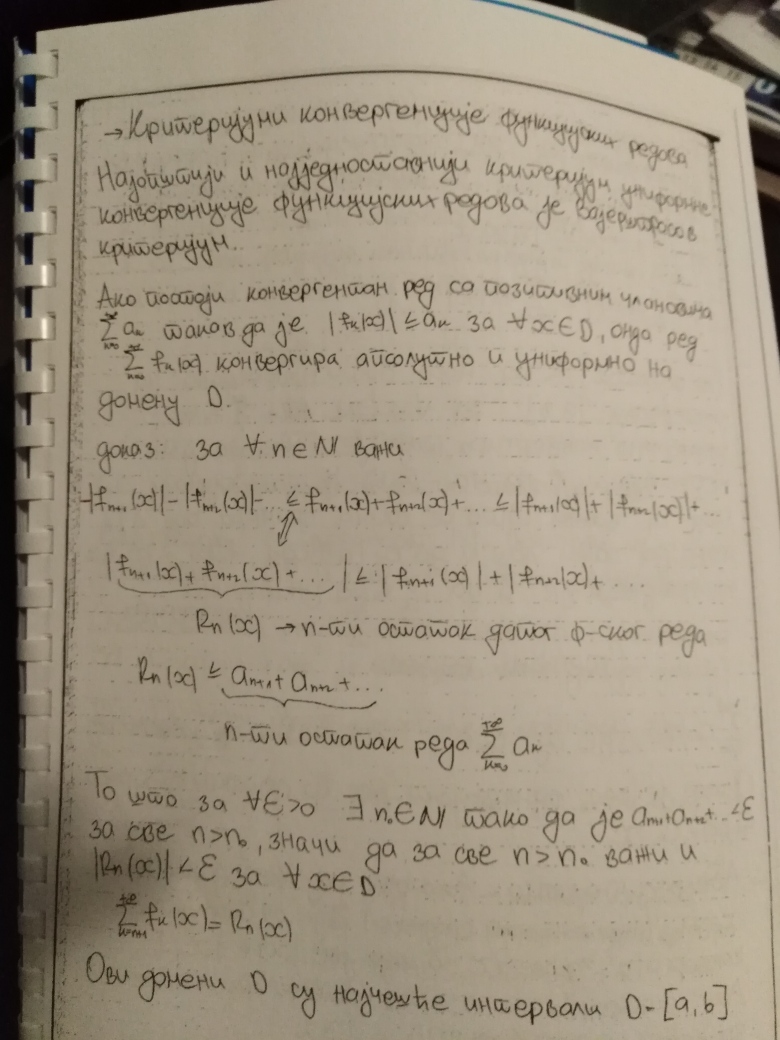 → Критеријуми конвергенције функцијских редова
Најопштији и најједноставнији критеријум униформне
конвергенције функцијских редова је Вајерштрасов
критеријум.
Ако постоји конвергентан ред са позитивним члановима
∑ aₖ таков да је |fₖ(x)| ≤ aₖ за ∀x∈D, онда ред
∑ fₖ(x) конвергира апсолутно и униформно на
домену D.
доказ: за ∀n∈N важи
-|fₙ₊₁(x)| - |fₙ₊₂(x)| - ... ≤ fₙ₊₁(x) + fₙ₊₂(x) + ... ≤ |fₙ₊₁(x)| + |fₙ₊₂(x)| + ...
|fₙ₊₁(x) + fₙ₊₂(x) + ... | ≤ |fₙ₊₁(x)| + |fₙ₊₂(x) + ...
Rₙ(x) → n-ти остатак датог ф-ског реда
Rₙ(x) ≤ aₙ₊₁ + aₙ₊₂ + ...
n-ти остатак реда ∑ aₖ
То што за ∀Ɛ>0 ∃n₀∈N тако да је aₙ₊₁+aₙ₊₂+...<Ɛ
за све n>n₀, значи да за све n>n₀ важи и
|Rₙ(x)| < Ɛ за ∀x∈D
∑ fₖ(x) = Rₙ(x)
Ови домени D су најчешће интервали D-[a,b]